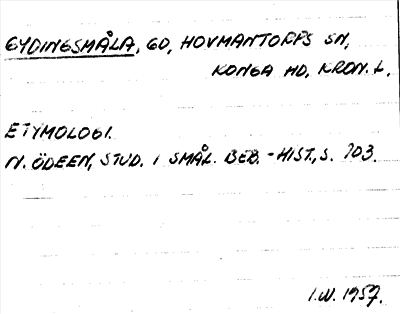 GYDINGSMÅLA, GD, HOVMANTORPS SN,
KONGA HD, KRON. L.
ETYMOLOGI.
N. ÖDEEN, STUD. I SMÅL. BEB.-HIST., S. 103.
I.W. 1957.